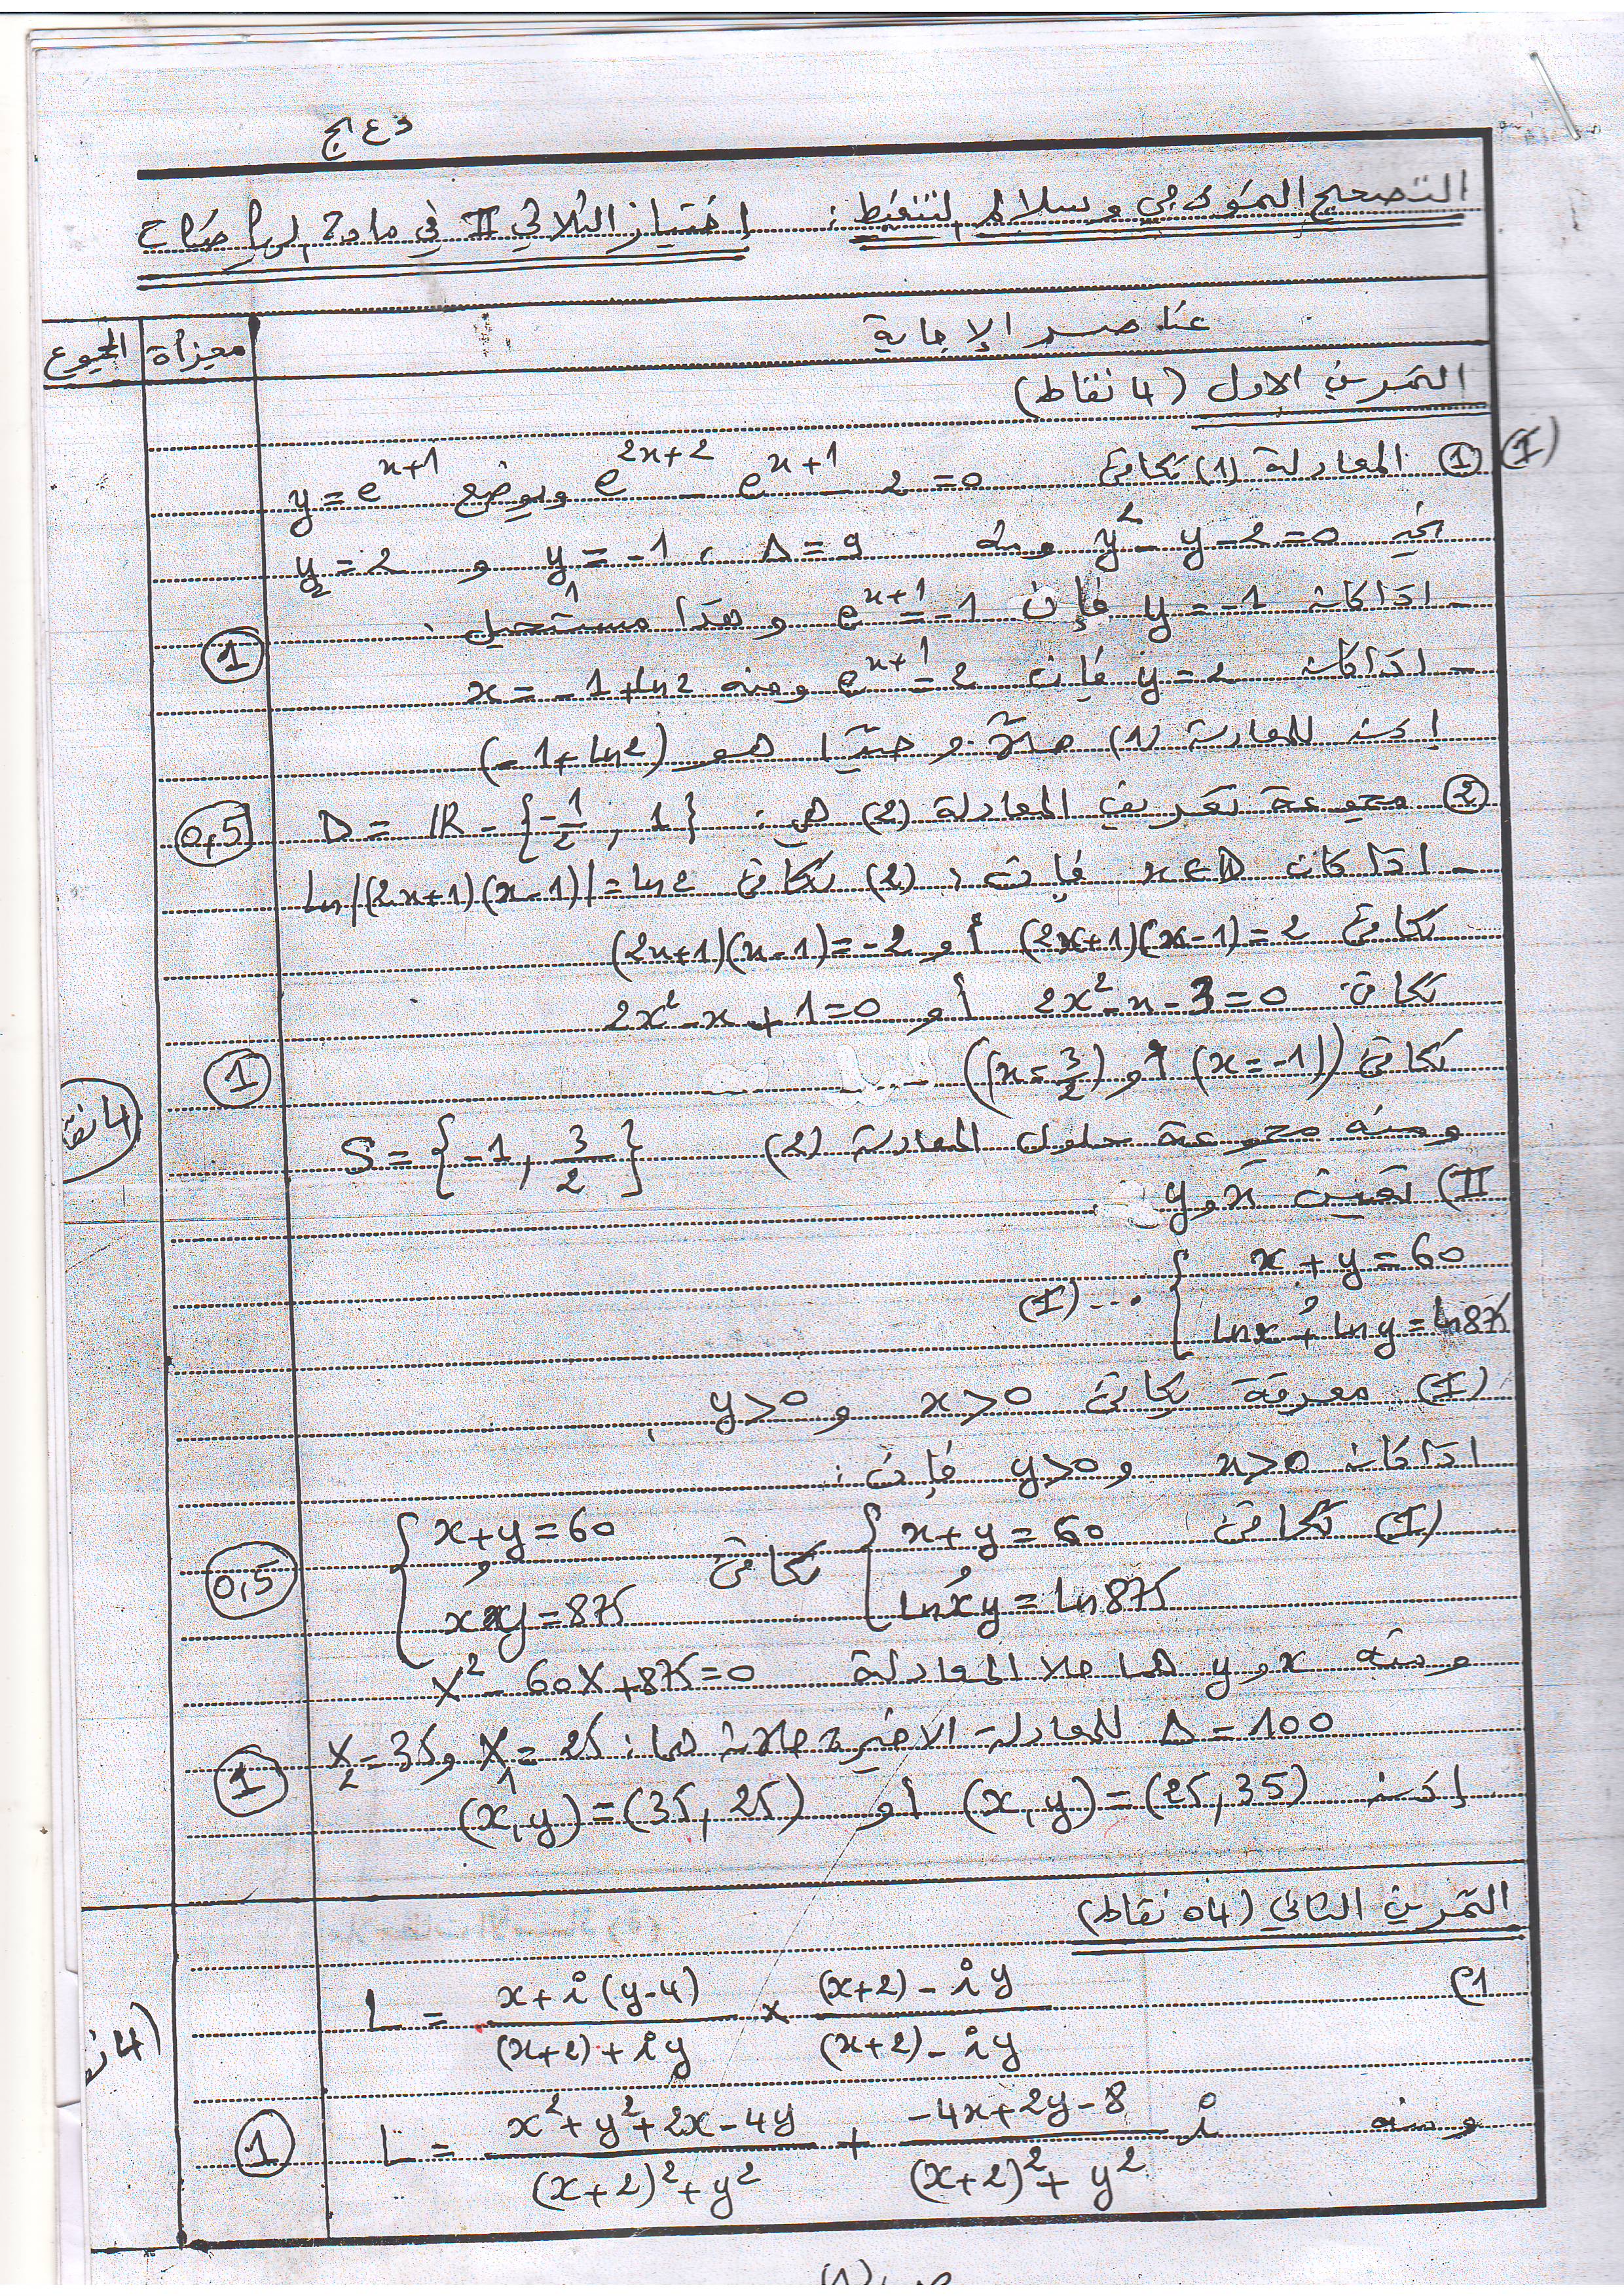 د ع ج
التصحيح النموذجي و سلالم التنقيط : إختبار الثلاثي II في مادة الرياضيات
عناصر الإجابة مجزأة المجموع
التمرين الاول (4 نقاط)
(I) ① المعادلة (1) تكافئ e^{2x+2} - e^{x+1} - 2 = 0 وبوضع y = e^{x+1}
نجد y² - y - 2 = 0 ومنه Δ = 9 ، y₁ = -1 و y₂ = 2
- اذا كانت y = -1 فإن e^{x+1} = -1 و هذا مستحيل .
- اذا كانت y = 2 فإن e^{x+1} = 2 ومنه x = -1 + ln2 ①
إذن للمعادلة (1) حلاّ وحيدًا هو (-1 + ln2)
② مجموعة تعريف المعادلة (2) هي : D = IR - {-1/2 , 1} 0,5
- اذا كان x ∈ D فإن : (2) تكافئ ln|(2x+1)(x-1)| = ln2
تكافئ (2x+1)(x-1) = 2 أو (2x+1)(x-1) = -2
تكافئ 2x² - x - 3 = 0 أو 2x² - x + 1 = 0
تكافئ ((x = -1) أو (x = 3/2)) 1 4 نقا
ومنه مجموعة حلول المعادلة (2) S = {-1 , 3/2}
II) تعيين x و y
{ x + y = 60
و
ln x + ln y = ln 875 ... (I)
(I) معرفة يكافئ x > 0 و y > 0 .
اذا كان x > 0 و y > 0 فإن :
(I) تكافئ { x + y = 60 و ln xy = ln 875 تكافئ { x + y = 60 و x×y = 875 0,5
ومنه x و y هما حلا المعادلة X² - 60X + 875 = 0
Δ = 100 للمعادلة الاخيرة حلان هما : X₁ = 25 و X₂ = 35
إذن (x, y) = (25, 35) أو (x, y) = (35, 25) 1
التمرين الثاني (04 نقاط)
1) L = (x + i(y-4))/((x+2) + iy) × ((x+2) - iy)/((x+2) - iy)
ومنه L = (x² + y² + 2x - 4y)/((x+2)² + y²) + (-4x + 2y - 8)/((x+2)² + y²) i 1